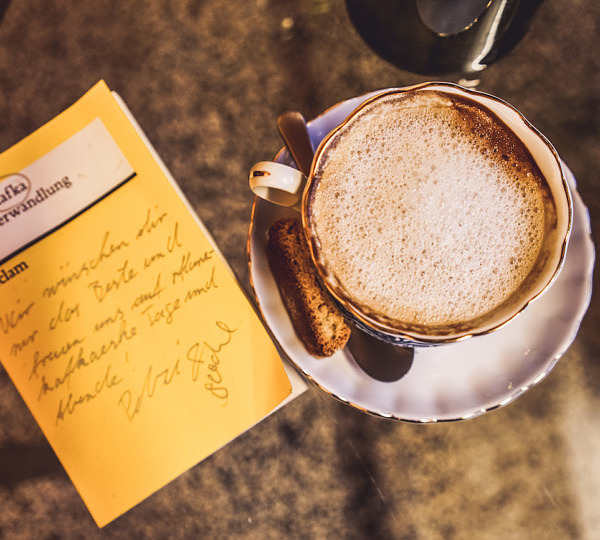 afka
erwandlung
clam
Wir wünschen dir
nur das Beste und
freuen uns auf
kafkaeske Tage und
Abende!